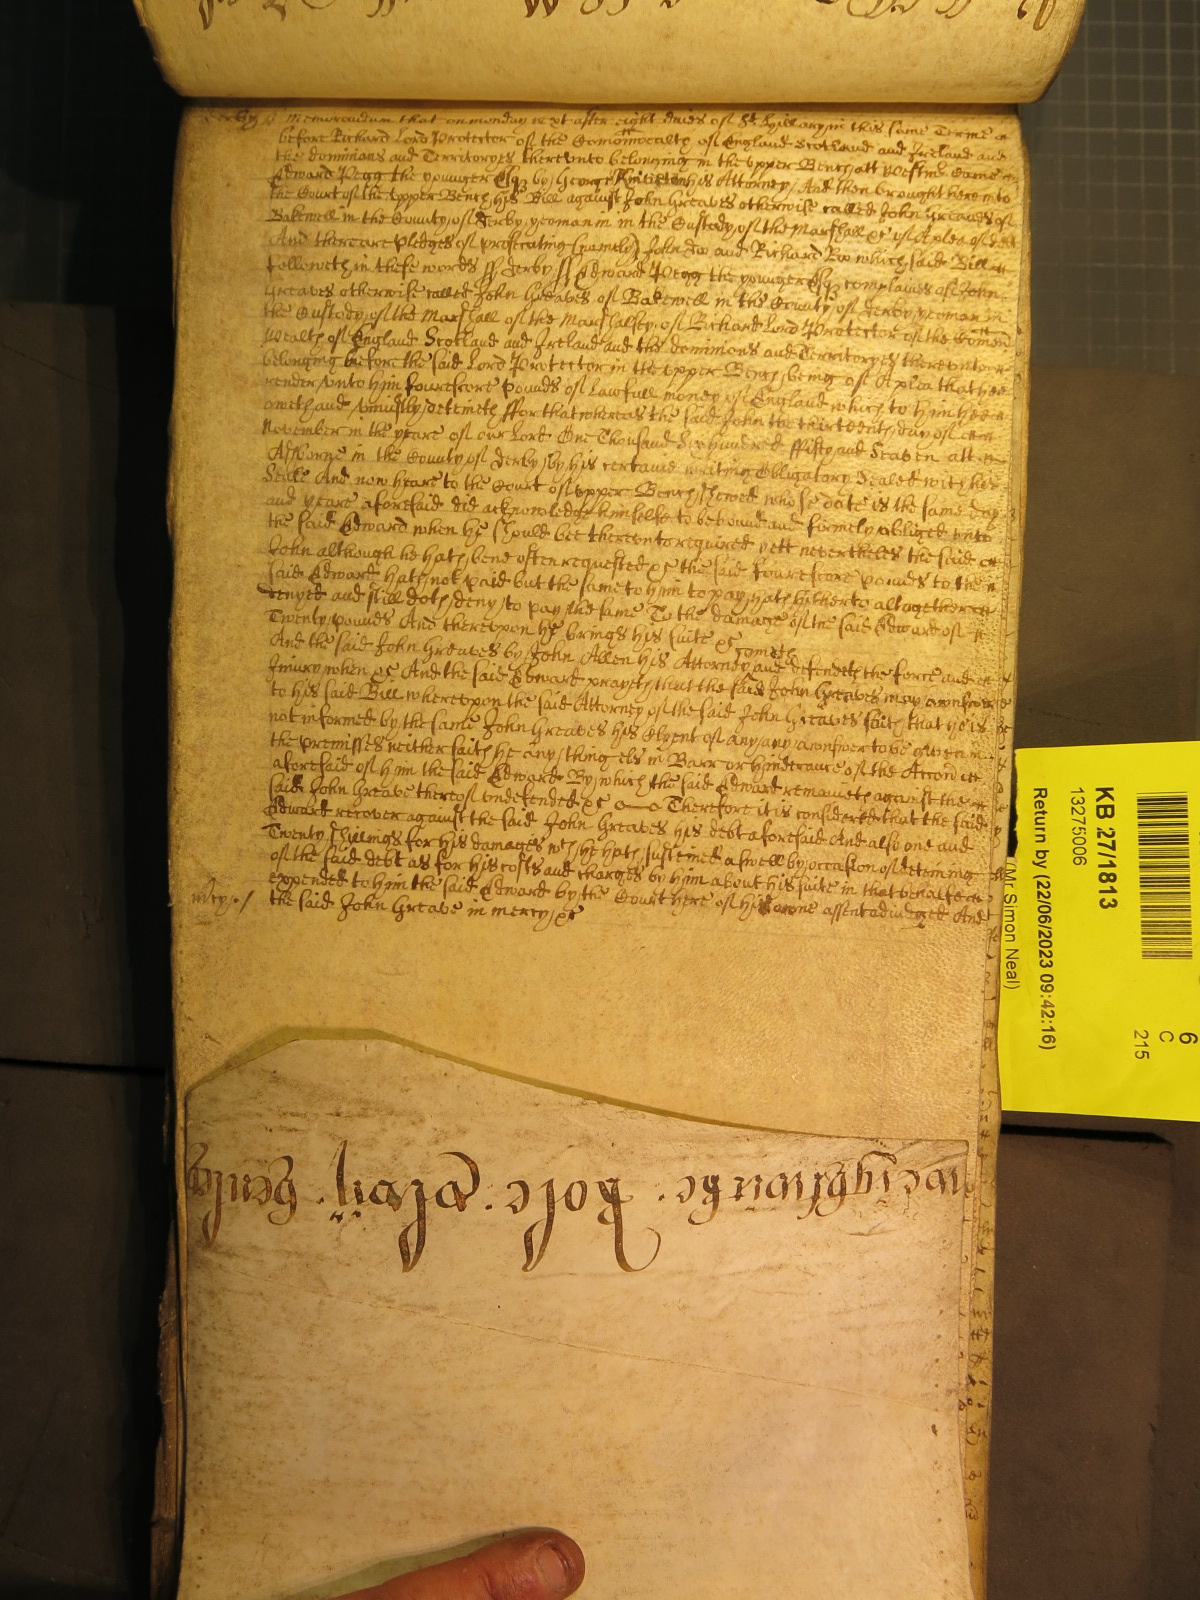 Derby ss Memorandum that on monday next after eight daies of St Hyllary in this same Terme
before Richard Lord Protector of the Comonwealth of England Scotland and Ireland and
the dominions and Territoryes thereunto belonging in the upper Bench att Westmr Came
Edward Pegg the younger Esqr by George his Attorney And then brought here into
the Court of the upper Bench his Bill against John Greaves otherwise called John Greaves of
Bakewell in the County of Derby yeoman in the Custody of the Marshall &c of A plea of debt
And there are pledges of prosecuting (namely) John Doe and Richard Roe which said Bill
followeth in these words ss Derby ss Edward Pegg the younger Esqr complaines of John
Greaves otherwise called John Greaves of Bakewell in the County of Derby yeoman in
the Custody of the Marshall of the Marshalsey of Richard Lord Protector of the Comon
wealth of England Scotland and Ireland and the dominions and Territoryes thereunto
belonging before the said Lord Protector in the upper Bench being of A plea that hee
render unto him fourescore pounds of Lawfull money of England which to him hee
oweth and uniustly deteineth ffor that whereas the said John the thirteenth day of
November in the yeare of our Lord One Thousand Six hundred ffifty and Seaven att
Asborne in the County of Derby by his certaine writing Obligatory Sealed with his
Seale And now heare to the Court of upper Bench shewed whose date is the same day
and yeare aforesaid did acknowledge himselfe to be bound and firmely obliged unto
the said Edward when he should bee thereunto required yett nevertheles the said
John although he hath bene often requested &c the said fourescore pounds to the
said Edward hath not paid but the same to him to pay hath hitherto altogether
denyed and still doth deny to pay the same To the damage of the said Edward of
Twenty pounds And thereupon he brings his suite &c
And the said John Greaves by John Allen his Attorney cometh and defendeth the force and
Iniury when &c And the said Edward prayeth that the said John Greaves may answere
to his said Bill whereupon the said Attorney of the said John Greaves saith that he is
not informed by the same John Greaves his Clyent of any answer to be given in
the premisses neither saith he any thing els in Barr or hinderance of the Accon
aforesaid of him the said Edward By which the said Edward remaineth against the
said John Greave thereof undefended &c Therefore it is considered that the said
Edward recover against the said John Greaves his debt aforesaid And also one and
Twenty shillings for his damages wch he hath susteined aswell by occasion of deteining
of the said debt as for his costs and charges by him about his suite in that behalfe
expended to him the said Edward by the Court here of his owne assent adiudged And
mcy./ the said John Greave in mercy &c
KB 27/1813
13275006
Return by (22/06/2023 09:42:16)
(Mr Simon Neal)
6
C
215